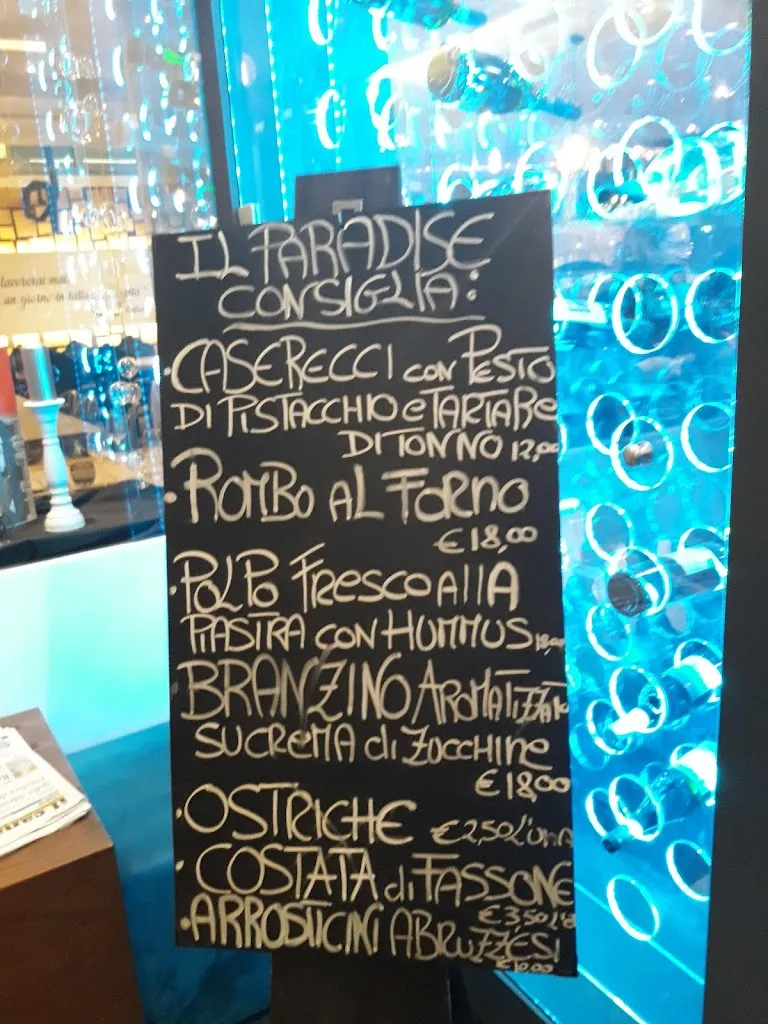 IL PARADISE
CONSIGLIA:
• CASERECCI CON PESTO
DI PISTACCHIO e TARTARE
DI TONNO 12,00
• ROMBO AL FORNO
€ 18,00
• POLPO FRESCO ALLA
PIASTRA CON HUMMUS 18,00
• BRANZINO AROMATIZZATO
SU CREMA di ZUCCHINE
€ 18,00
• OSTRICHE € 2,50 L'UNA
• COSTATA di FASSONE
€ 3,50 L'
• ARROSTICINI ABRUZZESI
€ 10,00
lavorerai mai
un giorno in tutta